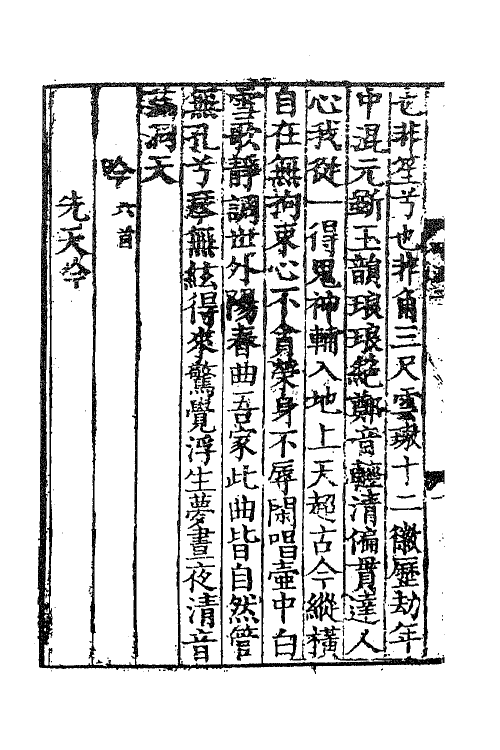 也非笙兮也非角三尺雲璈十二徽歷劫年
中混元斲玉韻琅琅絕鄭音輕清偏貫達人
心我從一得鬼神輔入地上天超古今縱橫
自在無拘束心不貪榮身不辱閑唱壺中白
雪歌靜調世外陽春曲吾家此曲皆自然管
無孔兮琴無絃得來驚覺浮生夢晝夜清音
滿洞天
吟六首
先天吟